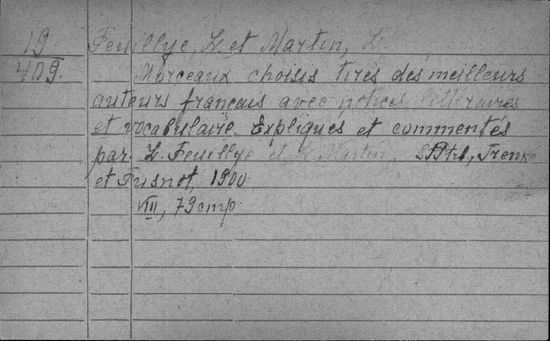 19
409.
Feuillye, L et Martin, L.
Morceaux choisis tirés des meilleurs
auteurs français avec notices littéraires
et vocabulaire. Expliqués et commentés
par L. Feuillye et L. Martin, SPtrb, Trenké
et Fusnot, 1900
VIII, 79 cmp